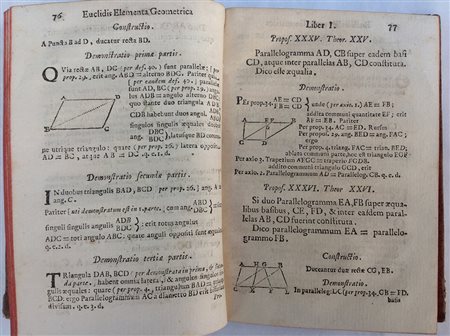 76 Euclidis Elementa Geometrica
Constructio.
A Puncto B ad D, ducatur recta BD.
Demonstratio primæ partis.
QVia rectæ AB, DC (per def. 40.) sunt parallelæ; (per
prop. 29. erit ang. ABD = alterno BDC. Pariter
(per eamdem def. 40.) parallelæ
sunt AD, BC (per prop. 29.) ang.
ADB = angulo alterno DBC
quo stante duo triangula ABD
CDB habebunt duos angul.
singulos singulis æquales:
ABD = BDC
ADB = DBC, latusque BD com-
ne utrique triangulo: quare (per prop. 26.) latera opposita
AD = BC, ac AB = DC q. e. 1. d.
Demonstratio secundæ partis.
IN duobus triangulis BAD, BCD per prop. 26.) ang. A =
ang. C.
Pariter (uti demonstratum est in 1. parte.) cum ang.
singuli singulis æquales: erit totus angulus
ADC = toti angulo ABC: quare anguli oppositi sunt æquales
q. e. 2. d.
Demonstratio tertiæ partis.
TRiangula DAB, BCD (per demonstrata in prima, & 2da
parte.) habent omnia latera, & angulos singula singulis
æquales: quare (per prop. 4.) triangulum BAD = triang.
BCD: ergo Parallelogrammum AC a diametro BD erit bifariam
divisum. q. e. 3. d.
Liber I. 77
Propos. XXXV. Theor. XXV.
Parallelogramma AD, CB super eadem basi
CD, atque inter parallelas AB, CD constituta.
Dico esse æqualia.
Demonstratio.
PEr prop. 34. AE = CD
FB = CD unde (per axio. 1.) AE = FB;
addita communi quantitate EF; erit
AF = EB. Pariter
Per prop. 34. AC = ED. Rursus
Per oppos. 29. ang. BED = ang. FAC;
ergo
Per prop. 4. triang. FAC = trian. BED;
ablata communi parte, hoc est triangulo EGF
Per axio. 3. Trapezium AEGC = trapezio FGDB.
addito communi triangulo CGD: erit
Per axio. 2. Parallelogrammum AD = Parallelog. CB. q. e. d.
Propos. XXXVI. Theor. XXVI.
Si duo Parallelogramma EA, FB super æqua-
libus basibus, CE, FD, & inter easdem paralle-
las AB, CD fuerint constituta.
Dico parallelogrammum EA = parallelo-
grammo FB.
Constructio.
Ducantur duæ rectæ CG, EB.
Demonstratio.
In parallelog: DG (per prop. 34. GB = FD.
basis